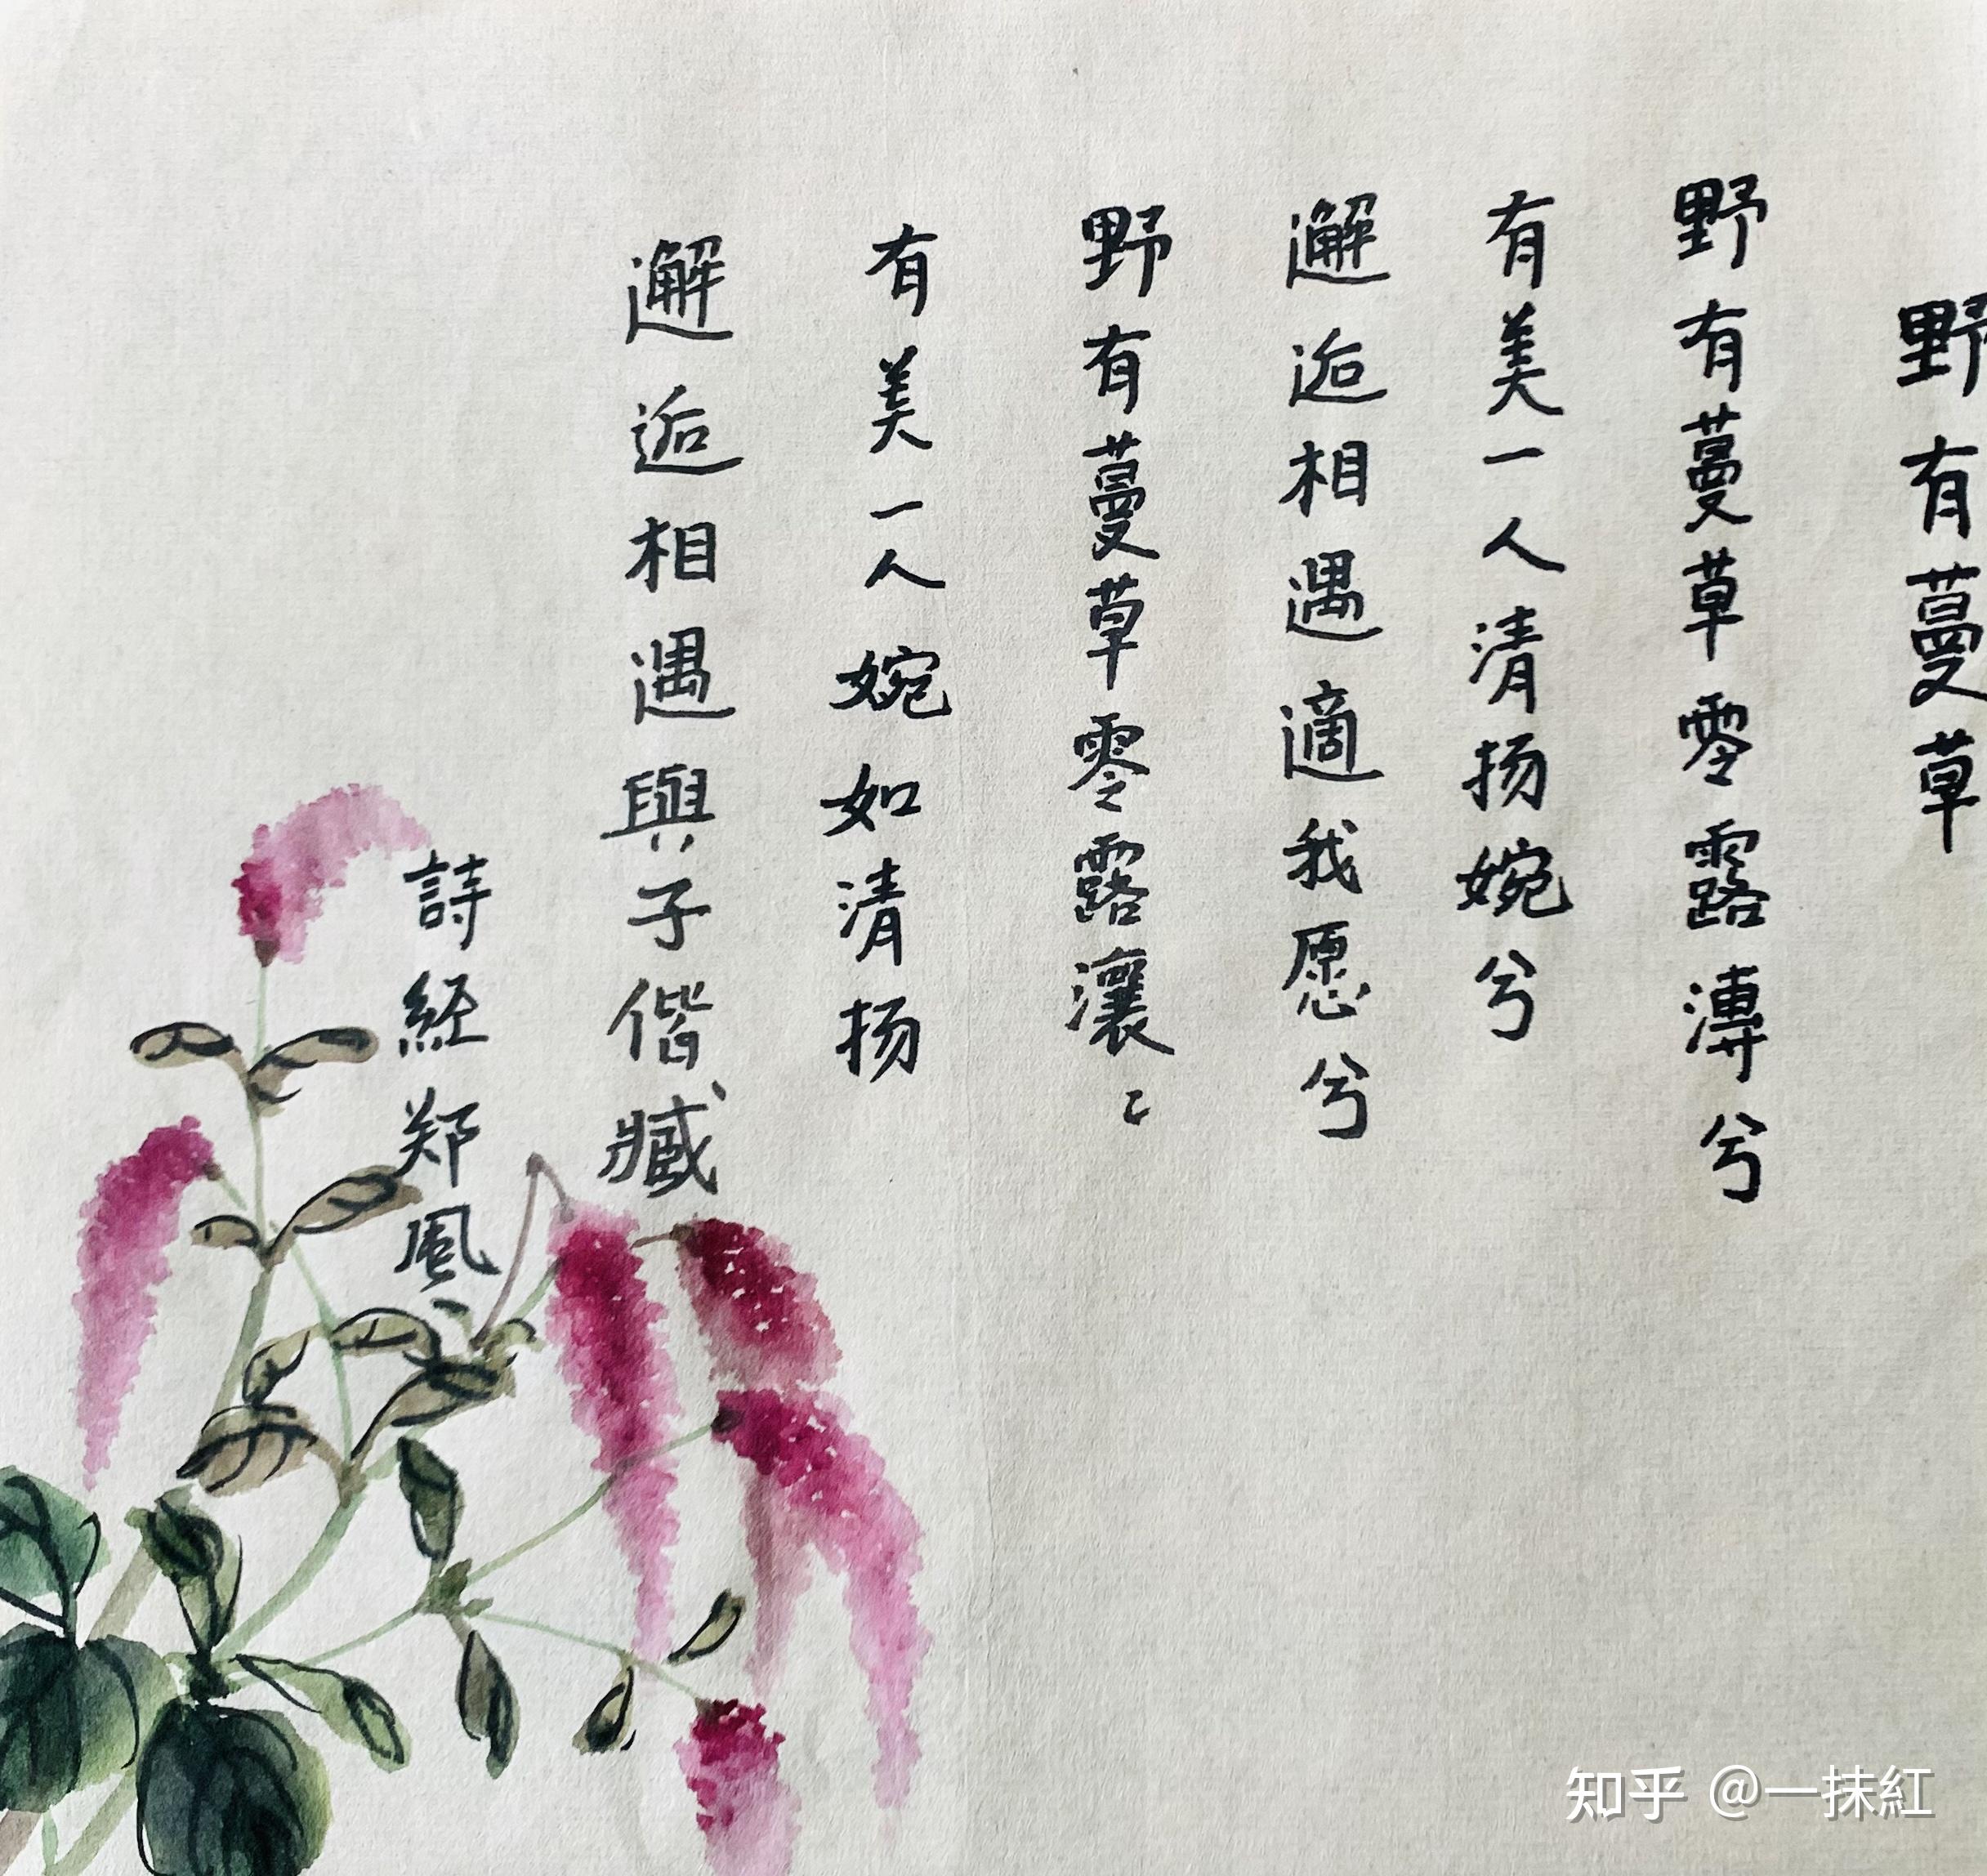 野有蔓草
野有蔓草零露漙兮
有美一人清扬婉兮
邂逅相遇適我愿兮
野有蔓草零露瀼〻
有美一人婉如清扬
邂逅相遇與子偕臧
詩経郑風
知乎 @一抹紅